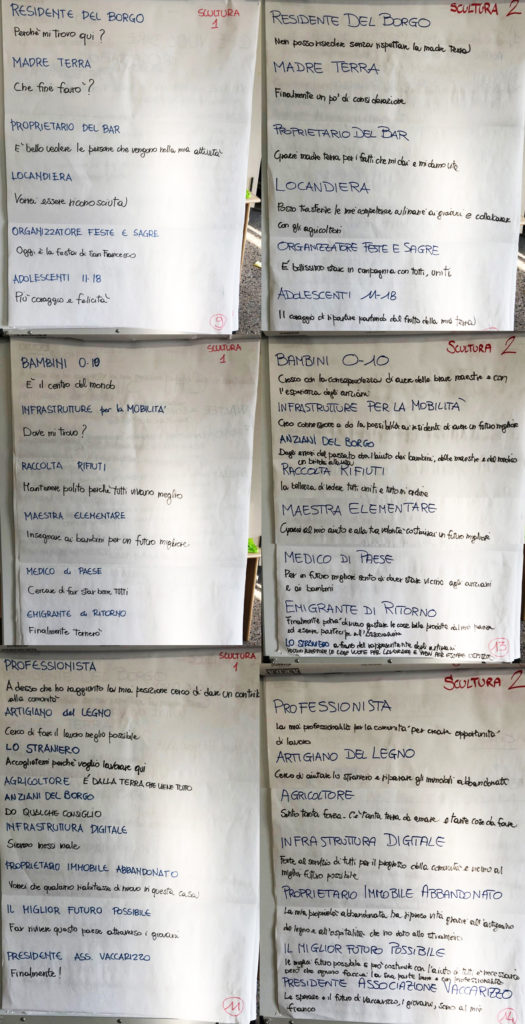 RESIDENTE DEL BORGO
SCULTURA
1
Perchè mi trovo qui ?
MADRE TERRA
Che fine farò ?
PROPRIETARIO DEL BAR
E' bello vedere le persone che vengono nella mia attività
LOCANDIERA
Vorrei essere riconosciuta
ORGANIZZATORE FESTE E SAGRE
Oggi è la festa di San Francesco
ADOLESCENTI 11-18
Più coraggio e felicità
9
RESIDENTE DEL BORGO
SCULTURA 2
Non posso risiedere senza rispettare la madre terra
MADRE TERRA
Finalmente un po' di considerazione
PROPRIETARIO DEL BAR
Grazie madre terra per i frutti che mi dai e mi
LOCANDIERA
Posso trasferire le mie competenze culinarie ai giovani e collaborare
con gli agricoltori
ORGANIZZATORE FESTE E SAGRE
E' bellissimo stare in compagnia con tutti, uniti
ADOLESCENTI 11-18
Il coraggio di ripartire partendo dal frutto della mia terra
BAMBINI 0-10
SCULTURA
1
È il centro del mondo
INFRASTRUTTURE per la MOBILITA'
Dove mi trovo ?
RACCOLTA RIFIUTI
Mantenere pulito perchè tutti vivano meglio
MAESTRA ELEMENTARE
Insegnare ai bambini per un futuro migliore
MEDICO di PAESE
Cercare di far star bene tutti
EMIGRANTE di RITORNO
Finalmente tornerò
BAMBINI 0-10
SCULTURA 2
Cresco con la consapevolezza di avere delle brave maestre e con
l'esperienza degli anziani
INFRASTRUTTURE PER LA MOBILITA'
Creo connessione e do la possibilità ai residenti di avere un futuro migliore
ANZIANI DEL BORGO
Dagli errori del passato con l'aiuto dei bambini, delle maestre e del medico
RACCOLTA RIFIUTI
la bellezza di vedere tutti uniti e tutto in ordine
MAESTRA ELEMENTARE
Grazie al mio aiuto e alla tua volontà costruirai un futuro migliore
MEDICO DI PAESE
Per un futuro migliore sento di dover stare vicino agli anziani
e ai bambini
EMIGRANTE DI RITORNO
Finalmente potrò di nuovo gustare le cose belle prodotte dal mio paese
ed essere partecipe all'associazione
LO STRANIERO
13
PROFESSIONISTA
SCULTURA
1
Adesso che ho raggiunto la mia posizione cerco di dare un contrib
alla comunità
ARTIGIANO del LEGNO
Cerco di fare il lavoro meglio possibile
LO STRANIERO
Accoglietemi perchè voglio lavorare qui
AGRICOLTORE E' DALLA TERRA CHE VIENE TUTTO
ANZIANI DEL BORGO
DO QUALCHE CONSIGLIO
INFRASTRUTTURA DIGITALE
Siamo messi male
PROPRIETARIO IMMOBILE ABBANDONATO
Vorrei che qualcuno riabitasse di nuovo in questa casa
IL MIGLIOR FUTURO POSSIBILE
Far rivivere questo paese attraverso i giovani
PRESIDENTE ASS. VACCARIZZO
Finalmente !
11
SCULTURA 2
PROFESSIONISTA
La mia professionalità per la comunità per creare opportunità
di lavoro
ARTIGIANO DEL LEGNO
Cerco di aiutare lo straniero e riparare gli immobili abbandonati
AGRICOLTORE
Sento tanta forza. C'è tanta terra da amare e tante cose da fare
INFRASTRUTTURA DIGITALE
Forte al servizio di tutti per il progresso della comunità e vicino al
miglior futuro possibile
PROPRIETARIO IMMOBILE ABBANDONATO
La mia proprietà abbandonata ha ripreso vita grazie all'artigiano
del legno e all'ospitalità che ho dato allo straniero
IL MIGLIOR FUTURO POSSIBILE
Il miglior futuro possibile si può costruire con l'aiuto di tutti, è necessario
però che ognuno faccia la sua parte bene e con professionalità
PRESIDENTE ASSOCIAZIONE VACCARIZZO
La speranza e il futuro di Vaccarizzo, i giovani, sono al mio
fianco
14